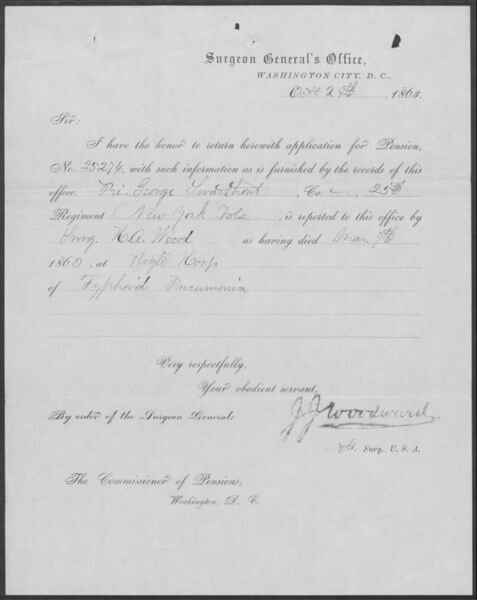 Surgeon General's Office,
WASHINGTON CITY, D. C.,
Oct 29th, 1863.
Sir:
I have the honor to return herewith application for Pension,
No. 25274, with such information as is furnished by the records of this
office. Pri. George Swarthout, Co. , 25th
Regiment New York Vols, is reported to this office by
Surg. H. A. Wood as having died Mar 7th
1863, at Regtl Hosp
of Typhoid Pneumonia
Very respectfully,
Your obedient servant,
By order of the Surgeon General:
J. J. Woodward
Surg., U. S. A.
The Commissioner of Pensions,
Washington, D. C.